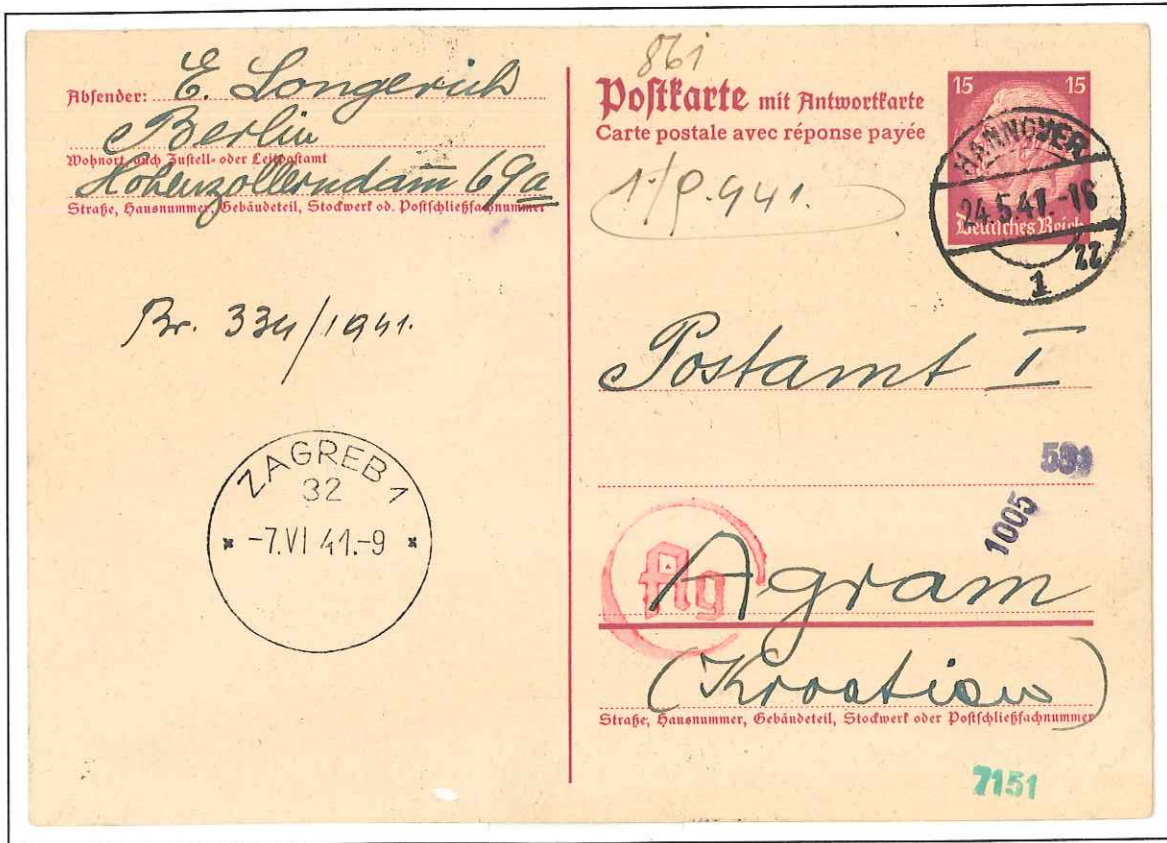 Absender: E. Longerich
Berlin
Wohnort, auch Zustell- oder Leitpostamt
Hohenzollerndam̅ 69a
Straße, Hausnummer, Gebäudeteil, Stockwerk od. Postschließfachnummer
Br. 334/1941.
ZAGREB 1
32
-7.VI 41.-9
861
Postkarte mit Antwortkarte
Carte postale avec réponse payée
941.
15 15
Deutsches Reich
HANNOVER
24.5.41.-16
1 zz
Postamt I
1005
Ag
Agram
(Kroatien)
Straße, Hausnummer, Gebäudeteil, Stockwerk oder Postschließfachnummer
7151